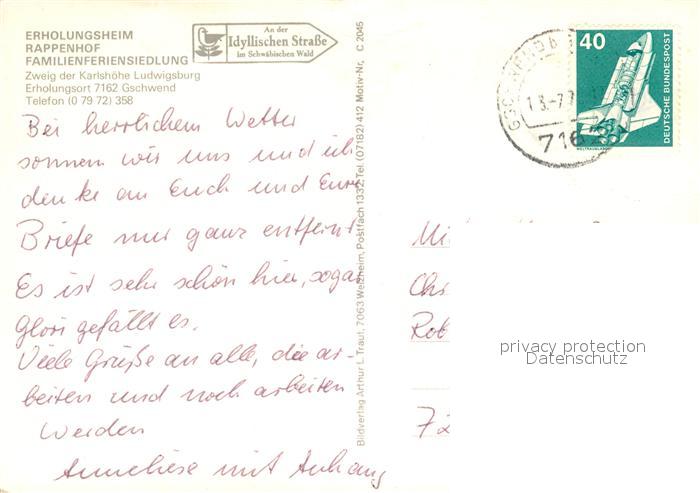 ERHOLUNGSHEIM
RAPPENHOF
FAMILIENFERIENSIEDLUNG
Zweig der Karlshöhe Ludwigsburg
Erholungsort 7162 Gschwend
Telefon (0 79 72) 358
An der
Idyllischen Straße
im Schwäbischen Wald
Bei herrlichem Wetter
sonnen wir uns und ich
denke an Euch und Eure
Briefe nur ganz entfernt
Es ist sehr schön hier, sogar
Glori gefällt es.
Viele Grüße an alle, die ar-
beiten und noch arbeiten
werden
Anneliese mit Anhang
Bildverlag Arthur L. Traut, 7063 Welzheim, Postfach 1332, Tel. (07182) 412 Motiv-Nr. C 2045
40
DEUTSCHE BUNDESPOST
WELTRAUMLABOR
7162
Mi
Chr
Rob
72
privacy protection
Datenschutz